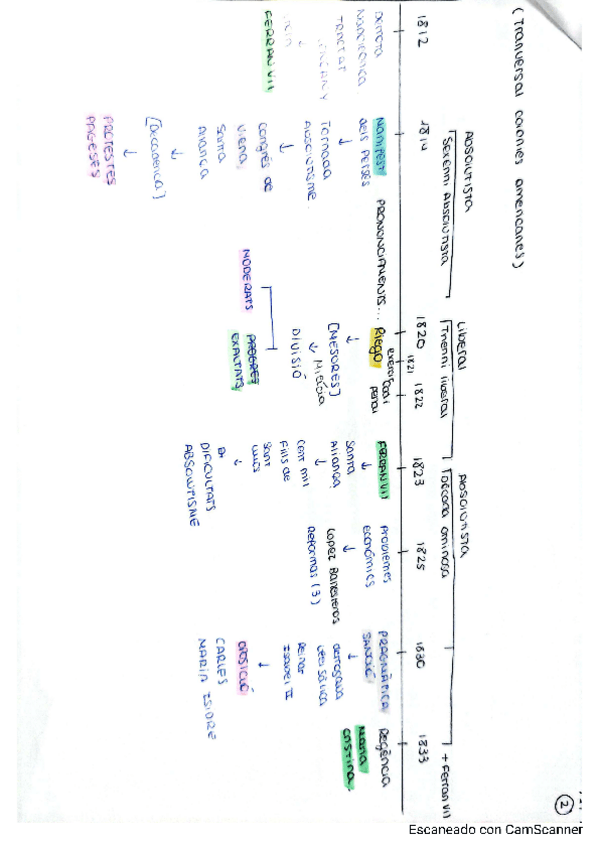 (Tranversal colonies americanes)
2
ABSOLUTISTA
Sexenni Absolutista
Liberal
Trienni liberal
ABSOLUTISTA
Dècada ominosa
+ Ferran VII
1812
1814
1820
1821
1822
1823
1825
1830
1833
Derrota
Napoleònica
TRACTAT
↓
FERRAN VII
Manifest
dels Perses
↓
Tornada
Absolutisme.
↓
Congrés de
Viena.
Santa
Aliança
↓
[Decadència]
↓
PROTESTES
PAGESES
PRONUNCIAMENTS...
Riego
↓
[MESURES]
↓ Milícia
DIVISIÓ
MODERATS
PROGRES
EXALTATS
codi
penal
FERRAN VII
↓
Santa
Aliança
↓
Cent mil
Fills de
Sant
Lluís
↓
DIFICULTATS
ABSOLUTISME
Problemes
econòmics
↓
Lopez Ballesteros
Reformas (3)
PRAGMÀTICA
SANCIÓ
↓
derogava
Llei Sàlica
Reina
Isabel II
↓
OPOSICIÓ
CARLES
MARIA ISIDRE
Regència
Maria
Cristina.
Escaneado con CamScanner